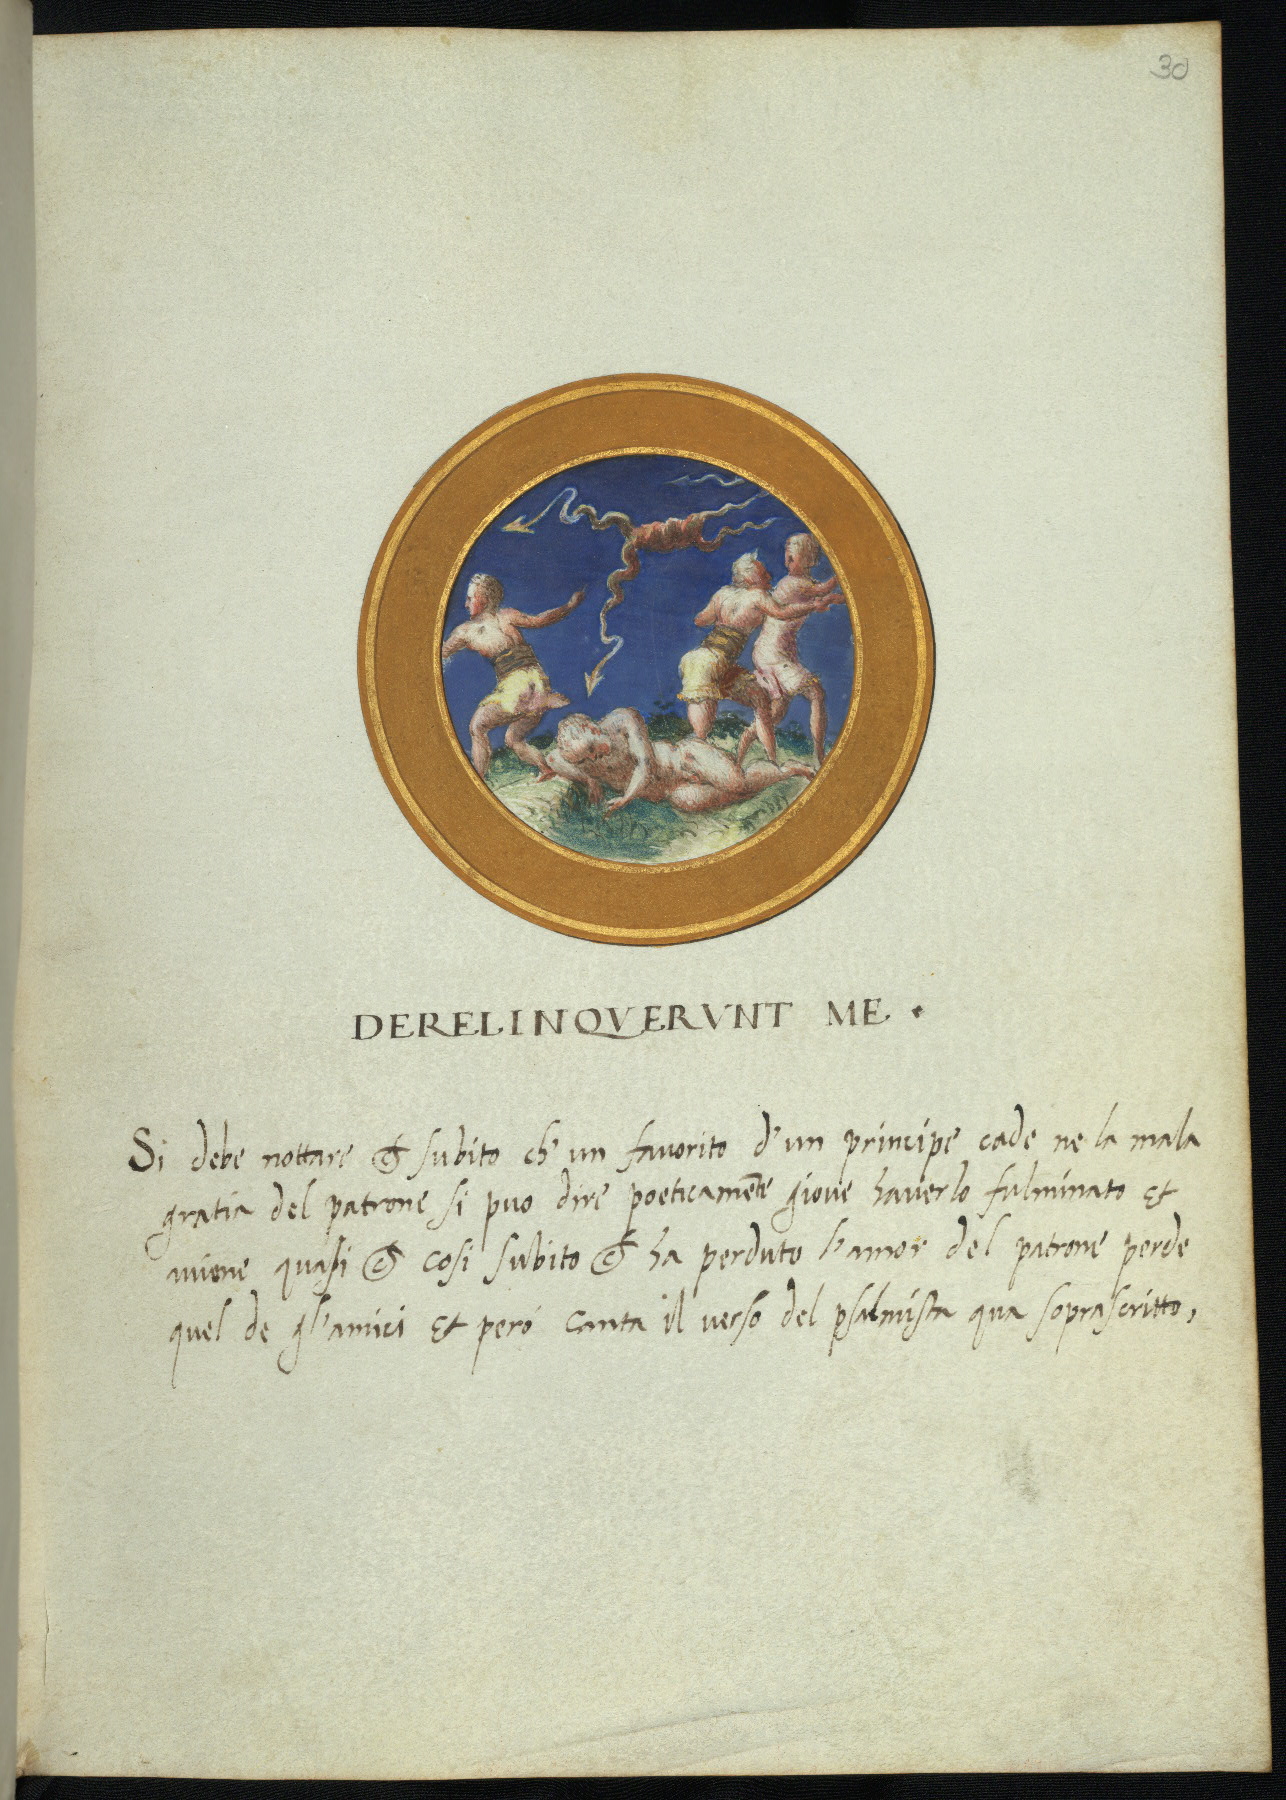 30
DERELINQVERVNT ME ·
Si debe nottare ch subito ch' un favorito d' un principe cade ne la mala
gratia del patrone si puo dire poeticamẽte giove haverlo fulminato et
aviene quasi ch cosi subito ch ha perduto l'amor del patrone perde
quel de gl'amici et peró canta il verso del psalmista qua soprascritto,